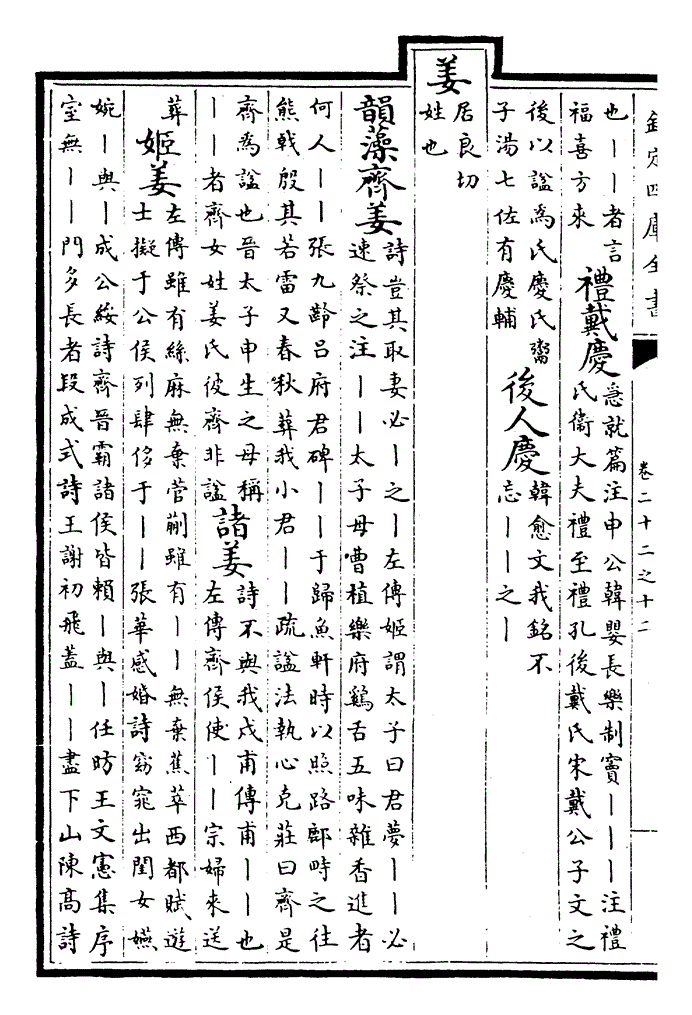 欽定四庫全書
卷二十二之十二
也丨丨者言
福喜方來
禮戴慶
急就篇注申公韓嬰長樂制寶丨丨丨注禮
氏衛大夫禮至禮孔後戴氏宋戴公子文之
後以諡為氏慶氏鬻
子湯七佐有慶輔
後人慶
韓愈文我銘不
忘丨丨之丨
姜
居良切
姓也
韻藻齊姜
詩豈其取妻必丨之丨左傳姬謂太子曰君夢丨丨必
速祭之注丨丨太子母曹植樂府鷄舌五味雜香進者
何人丨丨張九齡呂府君碑丨丨于歸魚軒時以照路鄜畤之往
熊戟殷其若雷又春秋葬我小君丨丨疏諡法執心克莊曰齊是
齊為諡也晉太子申生之母稱
丨丨者齊女姓姜氏彼齊非諡
諸姜
詩不與我戍甫傳甫丨丨也
左傳齊侯使丨丨宗婦來送
葬
姬姜
左傳雖有絲麻無棄菅蒯雖有丨丨無棄蕉萃西都賦遊
士擬于公侯列肆侈于丨丨張華感婚詩窈窕出閨女嬿
婉丨與丨成公綏詩齊晉霸諸侯皆賴丨與丨任昉王文憲集序
室無丨丨門多長者段成式詩王謝初飛蓋丨丨盡下山陳高詩